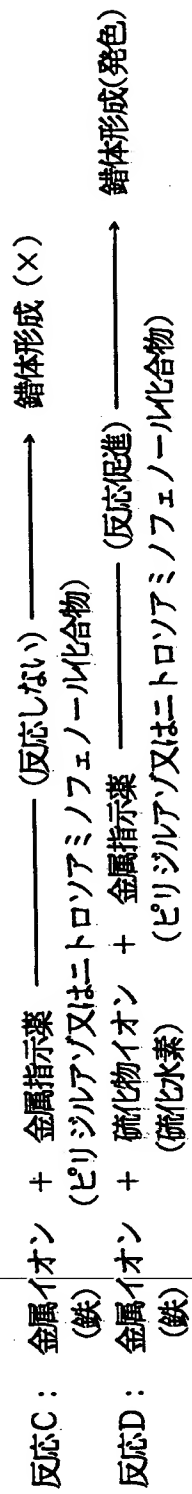 反応C： 金属イオン ＋ 金属指示薬 ――――(反応しない)――――→ 錯体形成 (×)
(鉄) (ピリジルアゾ又はニトロソアミノフェノール化合物)
反応D： 金属イオン ＋ 硫化物イオン ＋ 金属指示薬 ――――(反応促進)――――→ 錯体形成(発色)
(鉄) (硫化水素) (ピリジルアゾ又はニトロソアミノフェノール化合物)